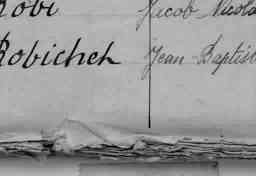 Robi Jacob Nicola
Robichek Jean Baptis